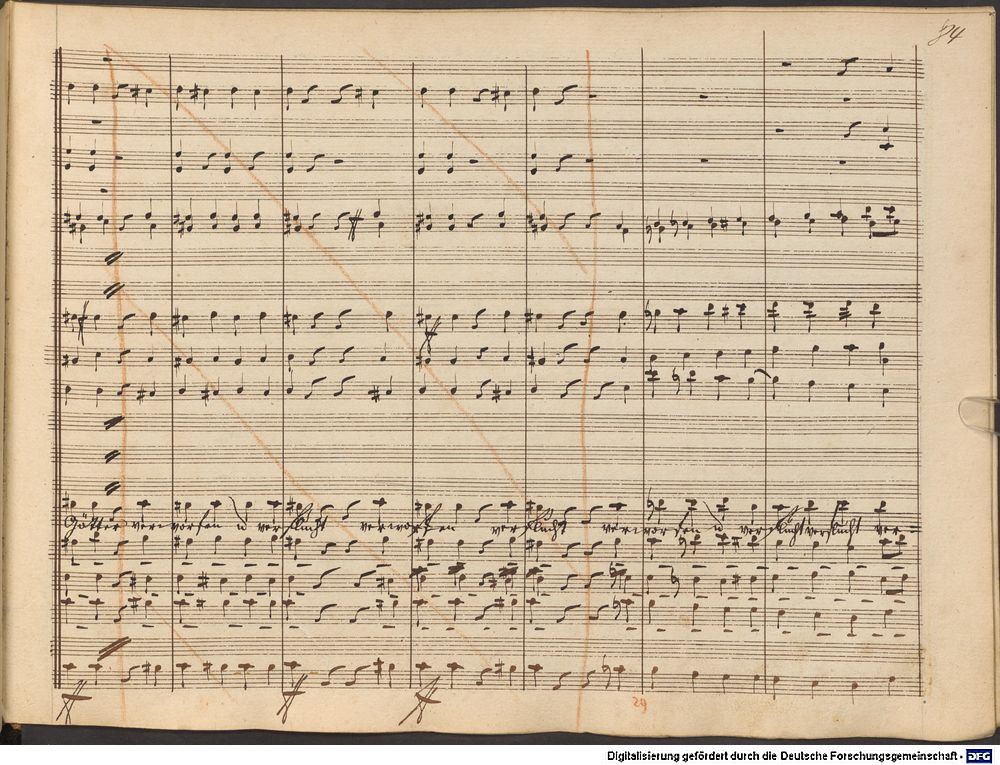 84
ff
ff
Götter verworfen u verflucht verworfen verflucht verworfen u verflucht verflucht ver=
ff ff ff
29
Digitalisierung gefördert durch die Deutsche Forschungsgemeinschaft - DFG